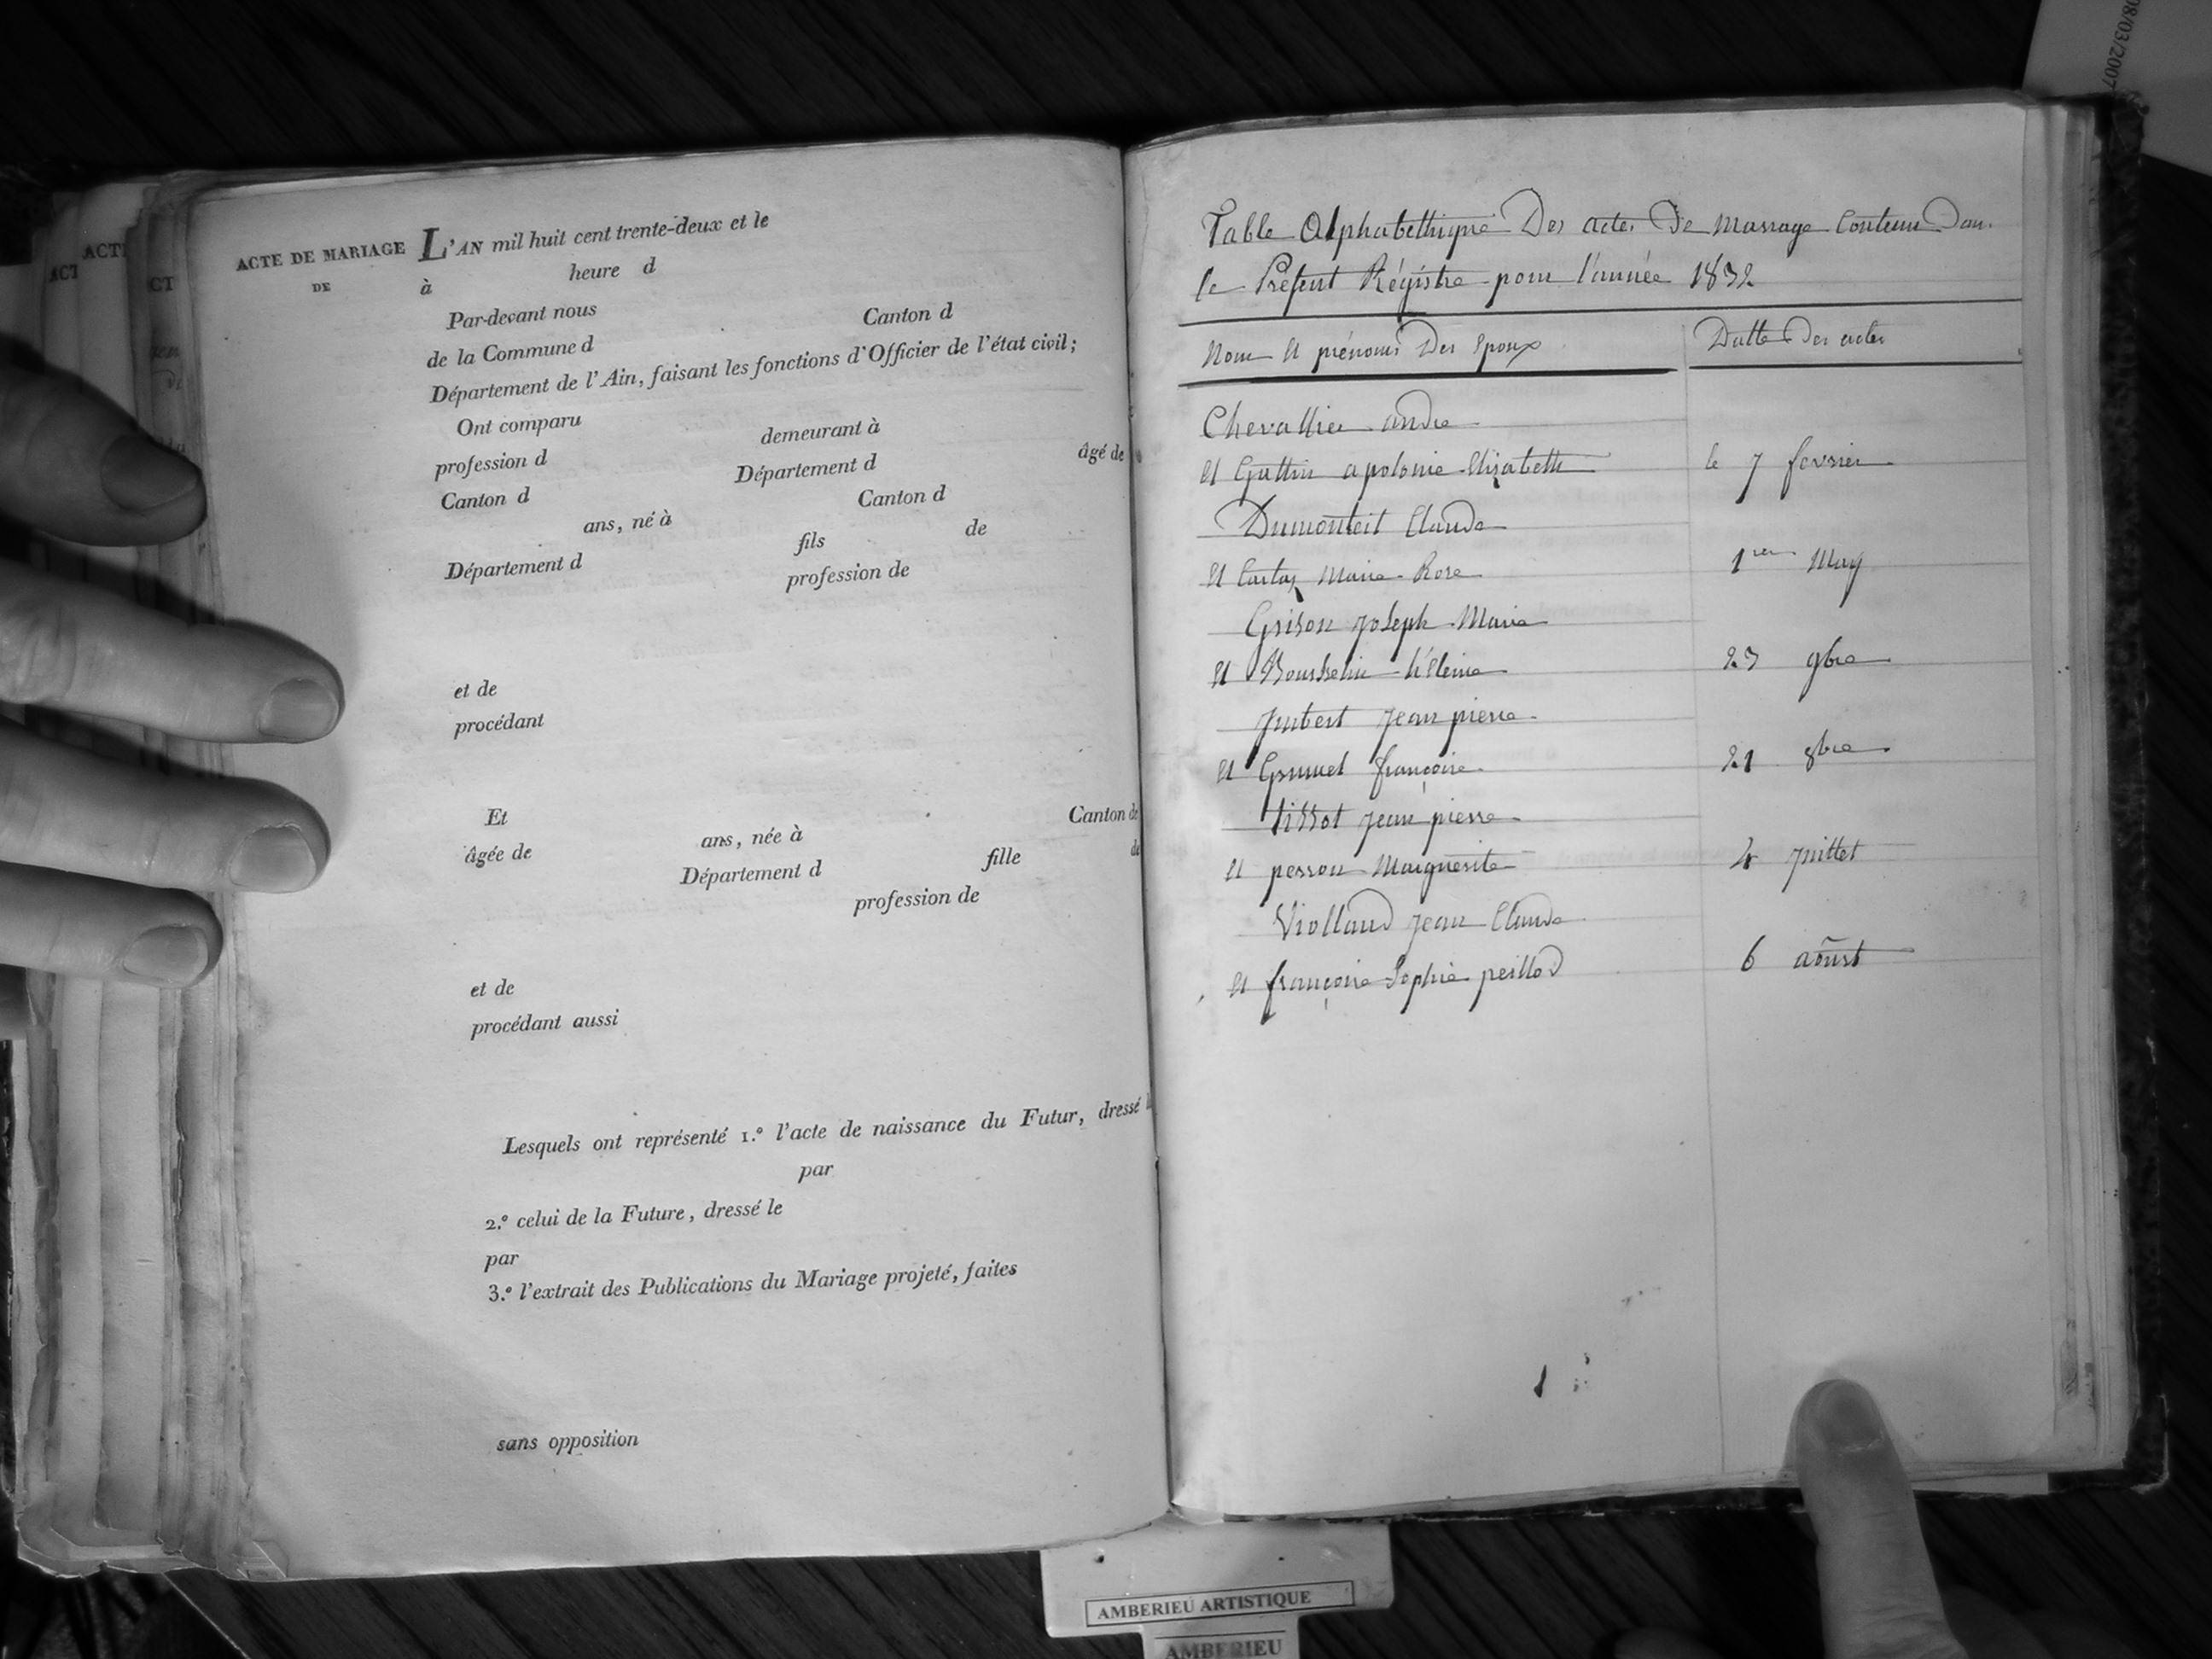 ACTE DE MARIAGE L'AN mil huit cent trente-deux et le
DE à heure d
Par-devant nous
de la Commune d Canton d
Département de l'Ain, faisant les fonctions d'Officier de l'état civil;
Ont comparu
profession d demeurant à
Canton d Département d âgé de
ans, né à Canton d
Département d fils de
profession de
et de
procédant
Et
âgée de ans, née à Canton de
Département d fille de
profession de
et de
procédant aussi
Lesquels ont représenté 1.° l'acte de naissance du Futur, dressé
par
2.° celui de la Future, dressé le
par
3.° l'extrait des Publications du Mariage projeté, faites
sans opposition
Table Alphabethique Des actes De Mariage Contenu Dans
le Présent Régistre pour l'année 1832
Nom Et prénoms Des Epoux Datte Des actes
Chevallier andre
Et Guttin apolonie Elizabeth le 7 fevrier
Dumonteil Claude
Et Marie Rose 1er May
Grison Joseph Marie
Et hélène 23 9bre
Jmbert Jean pierre
Et françoise 21 8bre
Tissot Jean pierre
Et perrou Marguerite 4 Juillet
Violland Jean Claude
Et françoise Sophie peillod 6 aoust
08/03/2007
ACTE
ACT
ACT
AMBERIEU ARTISTIQUE
AMBERIEU